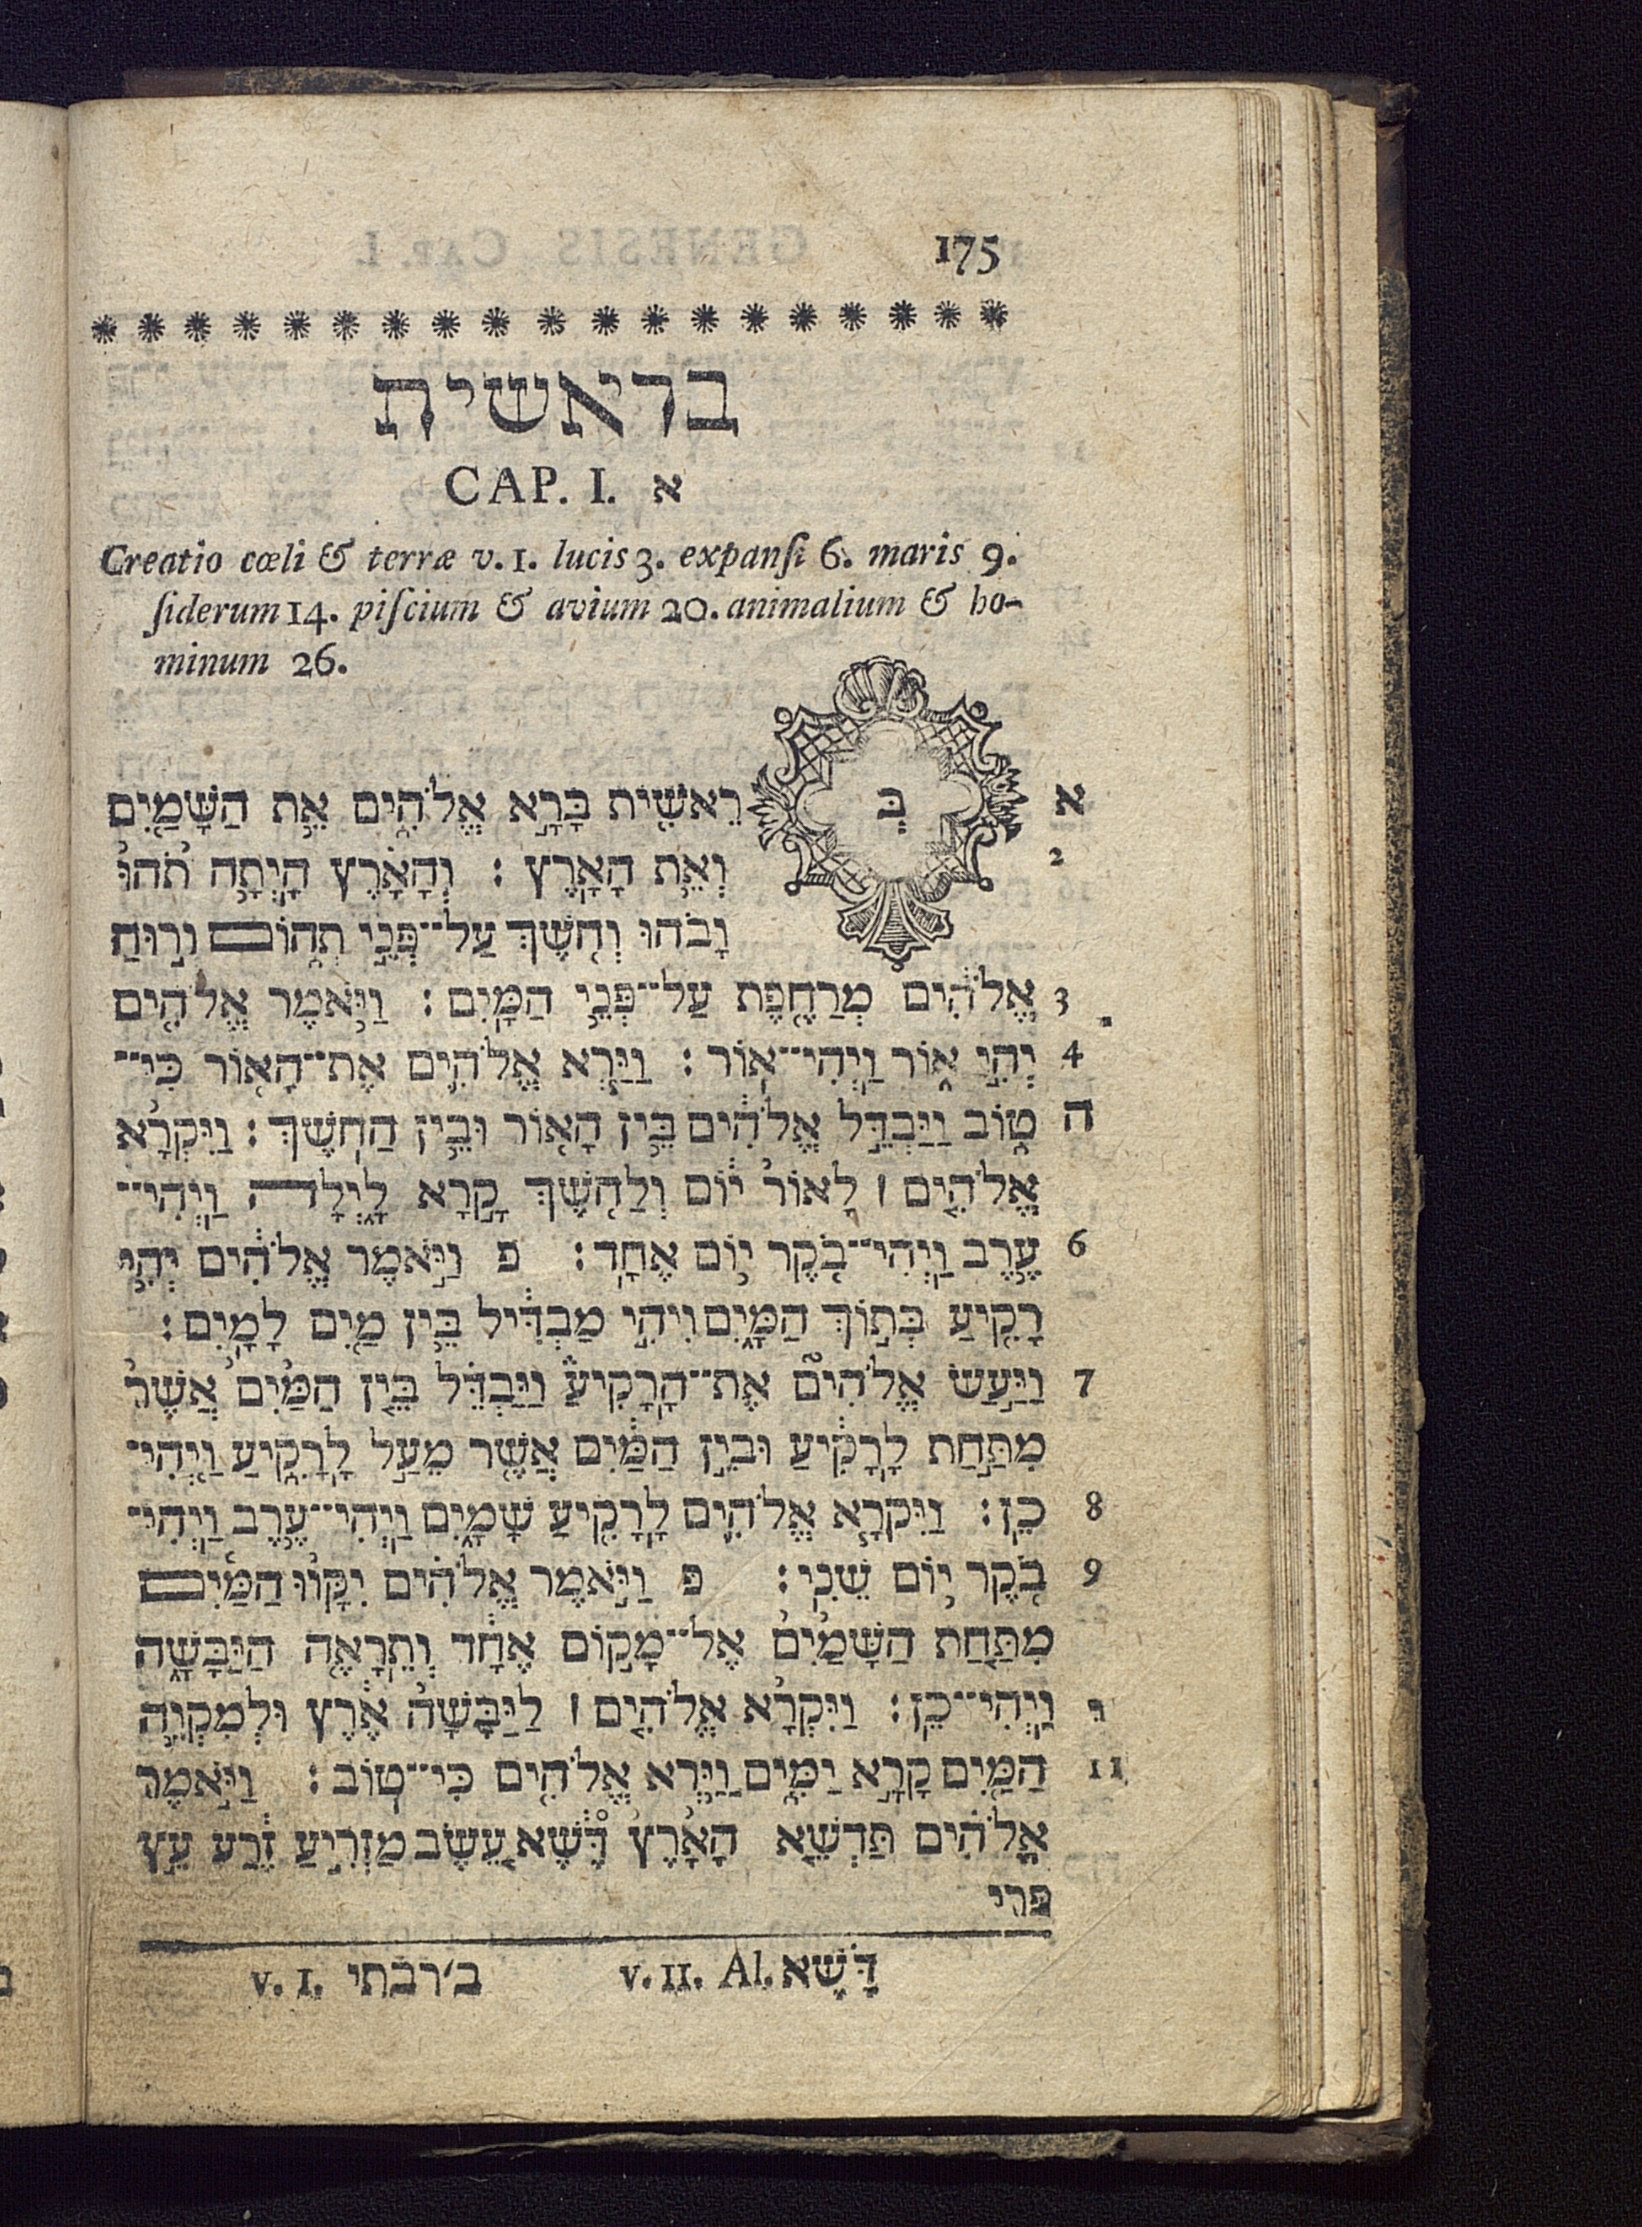 175
בראשית
CAP. I. א
Creatio cœli & terræ v. 1. lucis 3. expanſi 6. maris 9.
ſiderum 14. piſcium & avium 20. animalium & ho-
minum 26.
א בְּרֵאשִׁ֖ית בָּרָ֣א אֱלֹהִ֑ים אֵ֥ת הַשָּׁמַ֖יִם
2 וְאֵ֥ת הָאָֽרֶץ׃ וְהָאָ֗רֶץ הָיְתָ֥ה תֹ֙הוּ֙
וָבֹ֔הוּ וְחֹ֖שֶׁךְ עַל־פְּנֵ֣י תְה֑וֹם וְר֣וּחַ
3 אֱלֹהִ֔ים מְרַחֶ֖פֶת עַל־פְּנֵ֥י הַמָּֽיִם׃ וַיֹּ֥אמֶר אֱלֹהִ֖ים
4 יְהִ֣י א֑וֹר וַֽיְהִי־אֽוֹר׃ וַיַּ֧רְא אֱלֹהִ֛ים אֶת־הָא֖וֹר כִּי־
ה ט֑וֹב וַיַּבְדֵּ֣ל אֱלֹהִ֔ים בֵּ֥ין הָא֖וֹר וּבֵ֥ין הַחֹֽשֶׁךְ׃ וַיִּקְרָ֨א
אֱלֹהִ֤ים ׀ לָאוֹר֙ י֔וֹם וְלַחֹ֖שֶׁךְ קָ֣רָא לָ֑יְלָה וַֽיְהִי־
6 עֶ֥רֶב וַֽיְהִי־בֹ֖קֶר י֥וֹם אֶחָֽד׃ פ וַיֹּ֣אמֶר אֱלֹהִ֔ים יְהִ֥י
רָקִ֖יעַ בְּת֣וֹךְ הַמָּ֑יִם וִיהִ֣י מַבְדִּ֔יל בֵּ֥ין מַ֖יִם לָמָֽיִם׃
7 וַיַּ֣עַשׂ אֱלֹהִים֮ אֶת־הָרָקִיעַ֒ וַיַּבְדֵּ֗ל בֵּ֤ין הַמַּ֙יִם֙ אֲשֶׁר֙
מִתַּ֣חַת לָרָקִ֔יעַ וּבֵ֣ין הַמַּ֔יִם אֲשֶׁ֖ר מֵעַ֣ל לָרָקִ֑יעַ וַֽיְהִי־
8 כֵֽן׃ וַיִּקְרָ֧א אֱלֹהִ֛ים לָֽרָקִ֖יעַ שָׁמָ֑יִם וַֽיְהִי־עֶ֥רֶב וַֽיְהִי־
9 בֹ֖קֶר י֥וֹם שֵׁנִֽי׃ פ וַיֹּ֣אמֶר אֱלֹהִ֗ים יִקָּו֨וּ הַמַּ֜יִם
מִתַּ֤חַת הַשָּׁמַ֙יִם֙ אֶל־מָק֣וֹם אֶחָ֔ד וְתֵרָאֶ֖ה הַיַּבָּשָׁ֑ה
י וַֽיְהִי־כֵֽן׃ וַיִּקְרָ֨א אֱלֹהִ֤ים ׀ לַיַּבָּשָׁה֙ אֶ֔רֶץ וּלְמִקְוֵ֥ה
11 הַמַּ֖יִם קָרָ֣א יַמִּ֑ים וַיַּ֥רְא אֱלֹהִ֖ים כִּי־טֽוֹב׃ וַיֹּ֣אמֶר
אֱלֹהִ֗ים תַּֽדְשֵׁ֤א הָאָ֙רֶץ֙ דֶּ֔שֶׁא עֵ֚שֶׂב מַזְרִ֣יעַ זֶ֔רַע עֵ֣ץ
פרי
v. 1. ב׳ רבתי v. 11. Al. דֶּשֶׁא